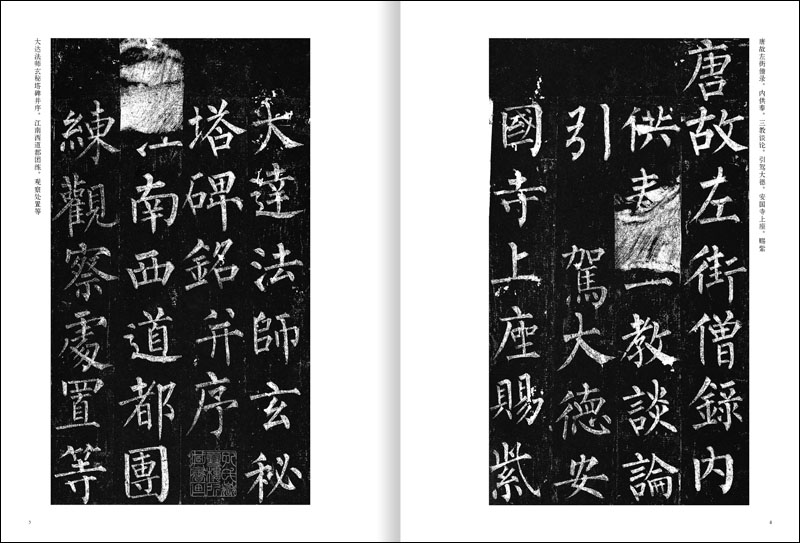 唐故左街僧录、内供奉、三教谈论、引驾大德、安国寺上座、赐紫
唐故左街僧錄內
供奉教談論
引駕大德安
國寺上座賜紫
大達法師玄秘
塔碑銘并序
江南西道都團
練觀察處置等
大达法师玄秘塔碑并序。江南西道都团练、观察处置等